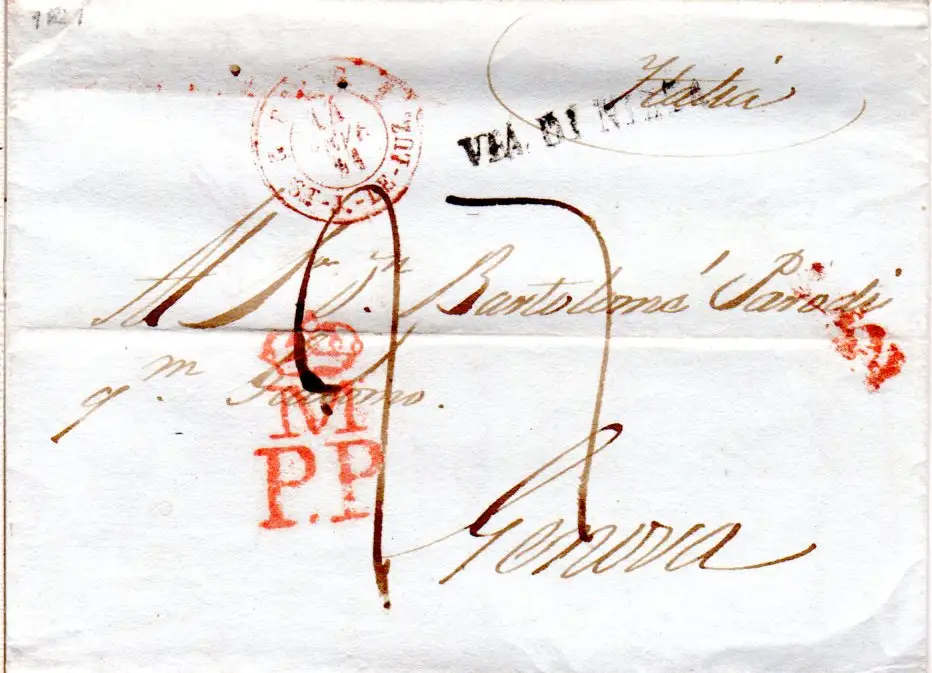 Italia
VIA DI NIZZA
ST.-J.-DE-LUZ.
Al Sor Dn Bartolomé Parodi
qm Giacomo.
M
P.P
Genova